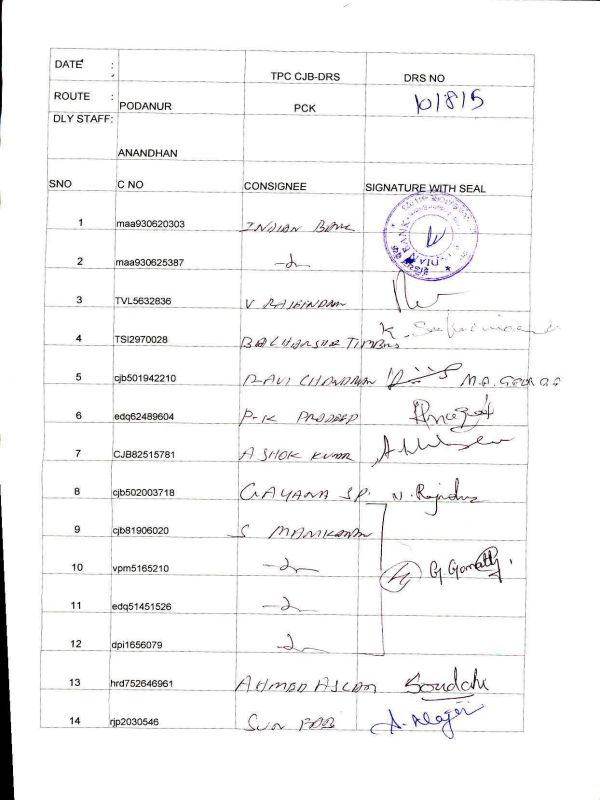 DATE :
TPC CJB-DRS DRS NO
ROUTE : PODANUR PCK 10/8/15
DLY STAFF:
ANANDHAN
SNO C NO CONSIGNEE SIGNATURE WITH SEAL
1 maa930620303 INDIAN BANK
2 maa930625387
3 TVL5632836 V RAJEINDRAN
4 TSI2970028 BALHARSHR TIMBRS K.
5 cjb501942210 RAVI CHANDRAN M.A. GEORGE
6 edq62489604 P.K PRADEEP
7 CJB82515781 ASHOK KUMAR
8 cjb502003718 GAYANA SP. N. Rajindra
9 cjb81906020 S MANIKANDAN
10 vpm5165210 G Gomathy.
11 edq51451526
12 dpi1656079
13 hrd752646961 AHMAD ASLAM Soudah
14 rjp2030546 SUN